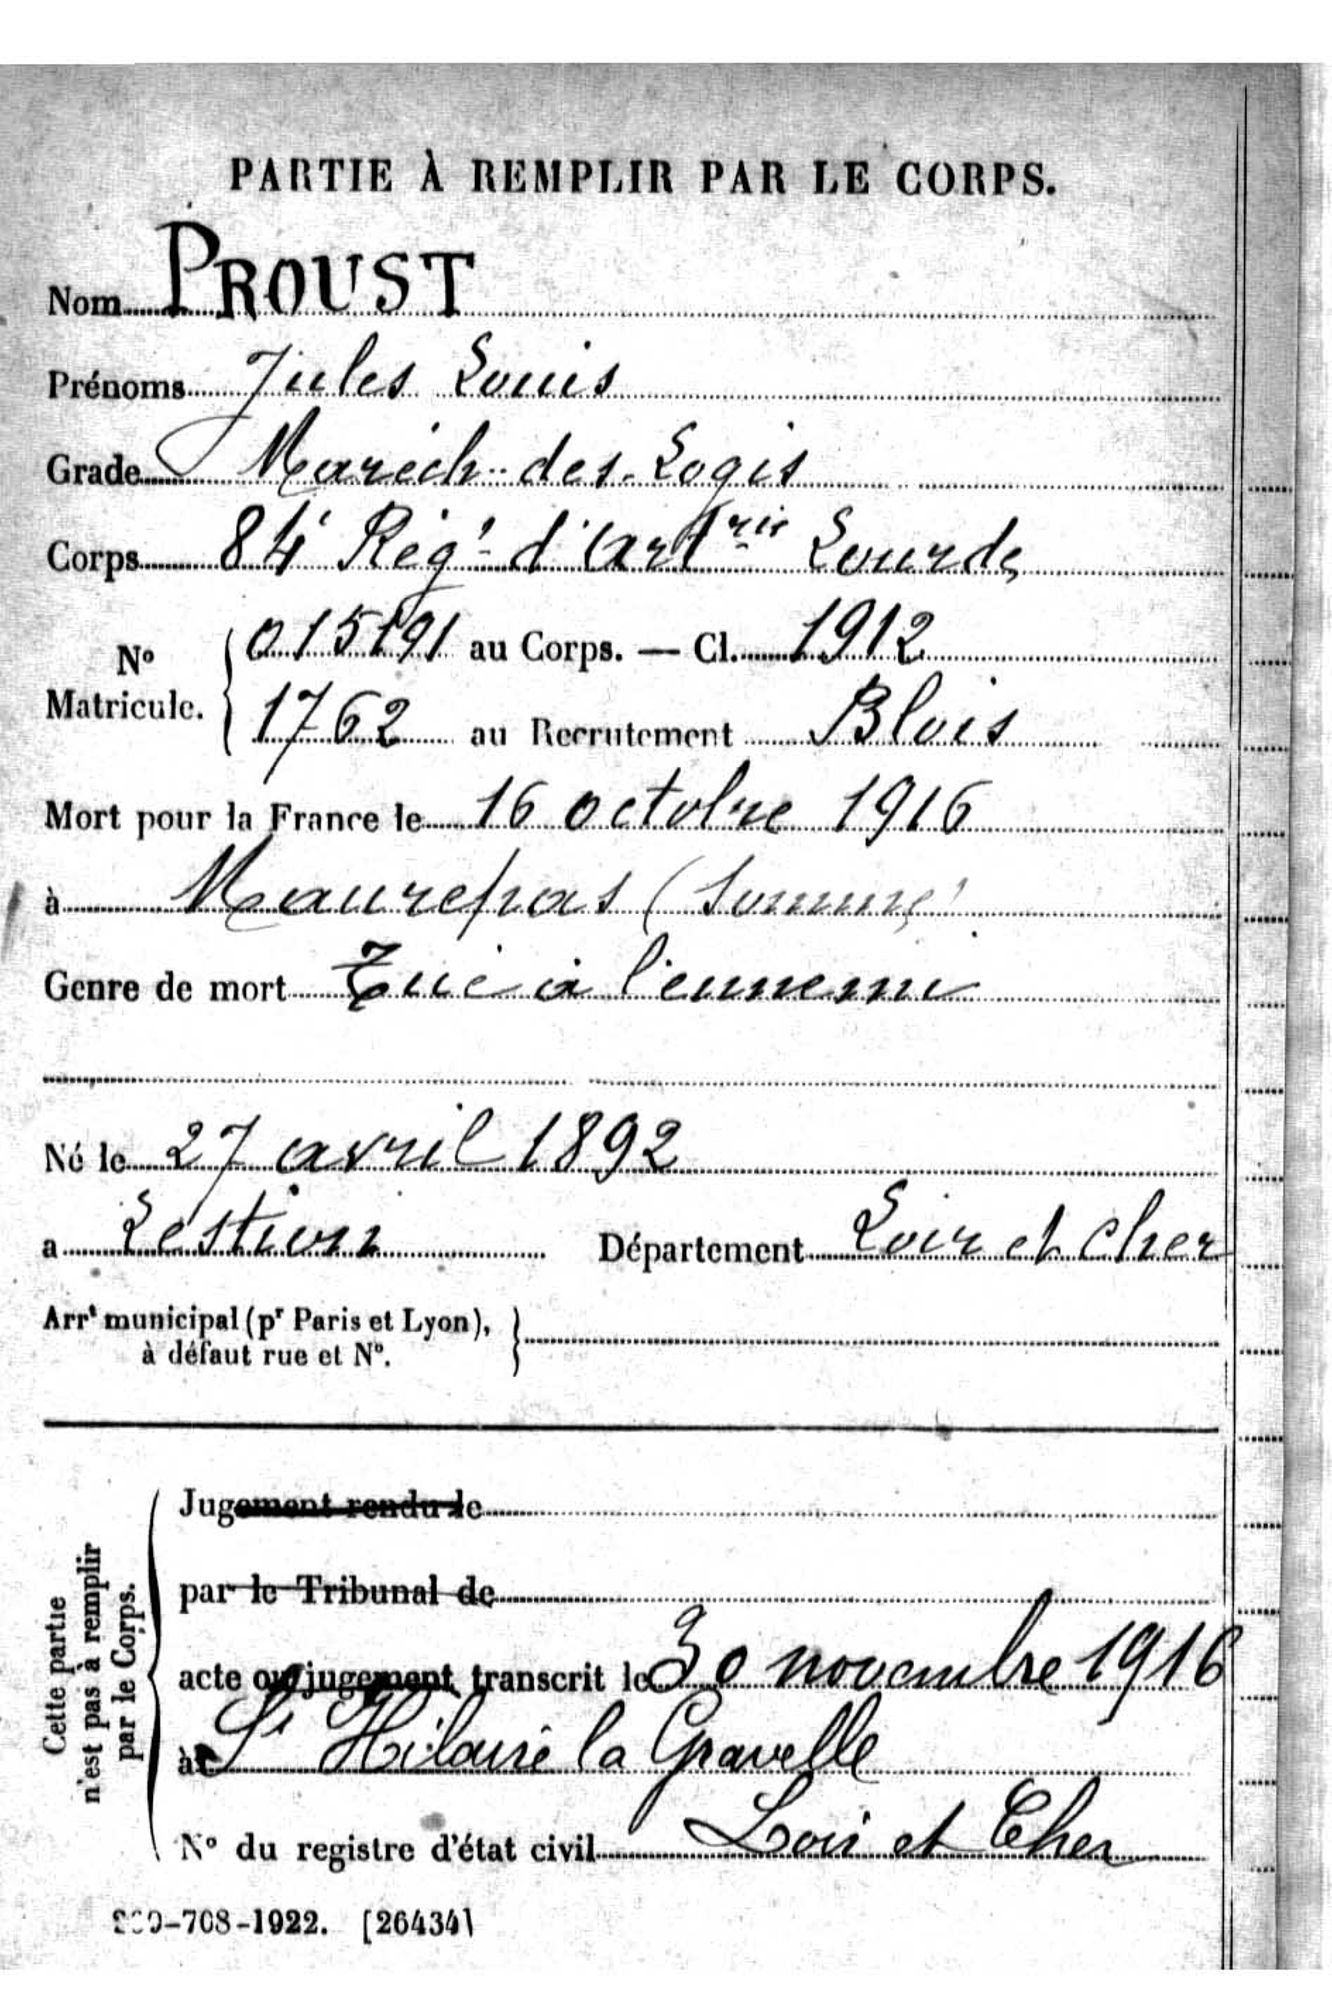 PARTIE À REMPLIR PAR LE CORPS.
Nom PROUST
Prénoms Jules Louis
Grade Maréch. des. Logis
Corps 84e Régt d'Artrie Lourde
No Matricule. 015191 au Corps. — Cl. 1912
1762 au Recrutement Blois
Mort pour la France le 16 octobre 1916
à Maurepas (Somme)
Genre de mort Tué à l'ennemi
Né le 27 avril 1892
a Lestiou Département Loir et Cher
Arrt municipal (pr Paris et Lyon),
à défaut rue et No.
Cette partie
n'est pas à remplir
par le Corps.
Jugement rendu le
par le Tribunal de
acte ou jugement transcrit le 30 novembre 1916
à St Hilaire la Gravelle
No du registre d'état civil Loir et Cher
-708-1922. [26434]